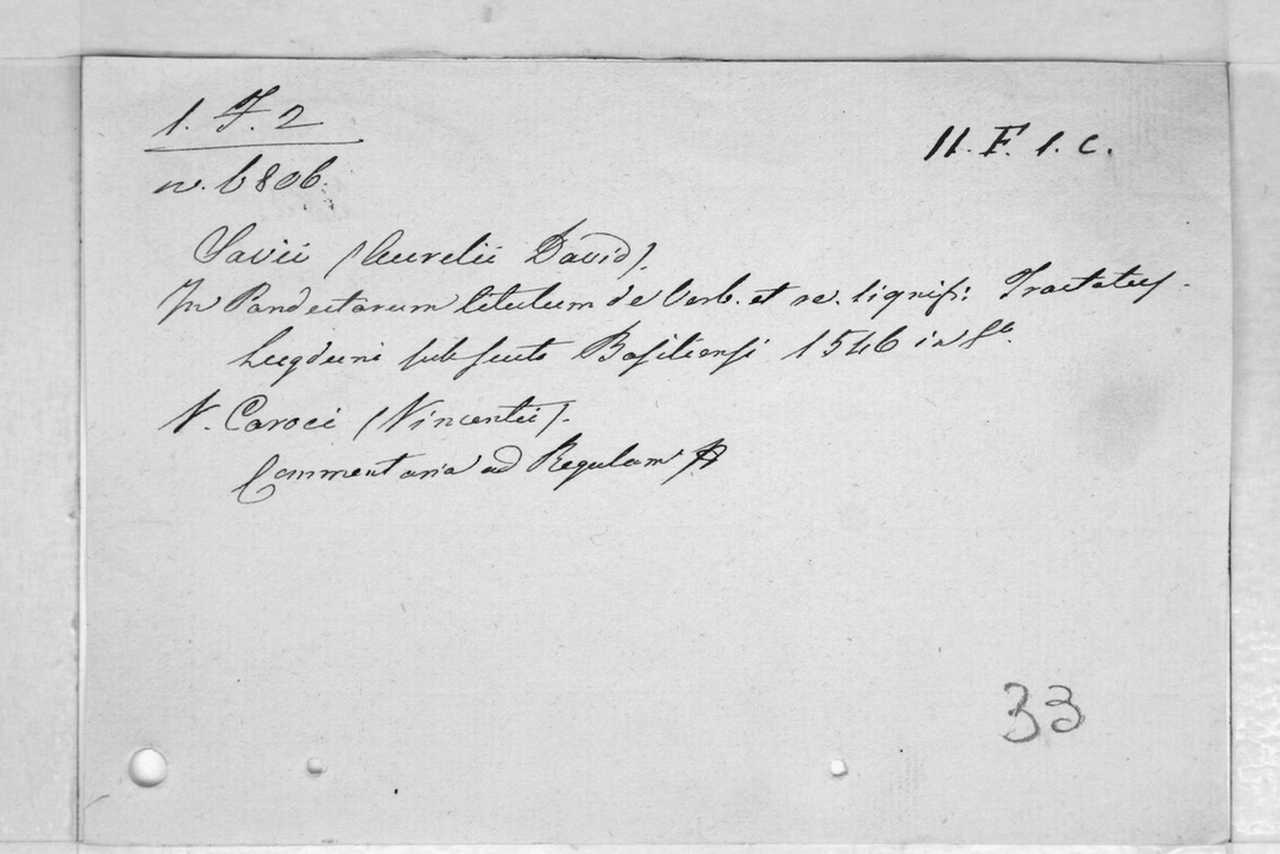 1. F. 2
II. F. 1. C.
n. 6806.
Savii (Aurelii David).
In Pandectarum titulum de Verb. et re. signifi: Tractatus.
Lugduni sub scuto Basiliensi 1546 in 8o.
V. Caroci (Vincentii).
Commentaria ad Regulam
33